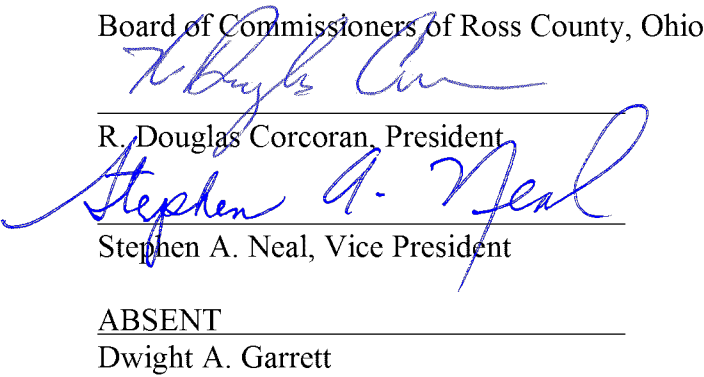 Board of Commissioners of Ross County, Ohio
R. Douglas Corcoran, President
Stephen A. Neal
Stephen A. Neal, Vice President
ABSENT
Dwight A. Garrett